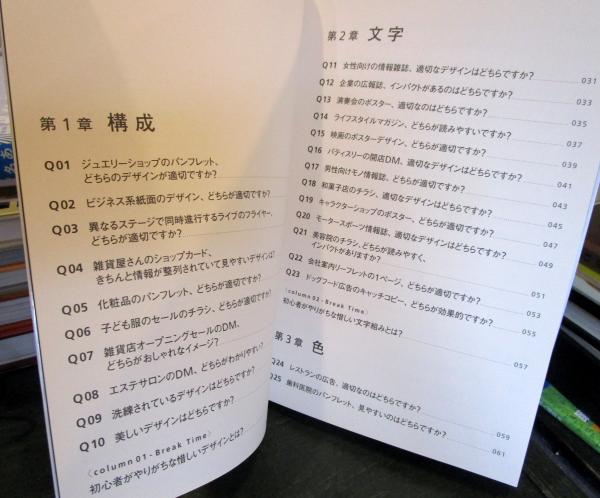 第1章 構成
Q01 ジュエリーショップのパンフレット、
どちらのデザインが適切ですか?
Q02 ビジネス系紙面のデザイン、どちらが適切ですか?
Q03 異なるステージで同時進行するライブのフライヤー、
どちらが適切ですか?
Q04 雑貨屋さんのショップカード、
きちんと情報が整列されていて見やすいデザインは?
Q05 化粧品のパンフレット、どちらが適切ですか?
Q06 子ども服のセールのチラシ、どちらが適切ですか?
Q07 雑貨店オープニングセールのDM、
どちらがおしゃれなイメージ?
Q08 エステサロンのDM、どちらがわかりやすい?
Q09 洗練されているデザインはどちらですか?
Q10 美しいデザインはどちらですか?
〈column01-Break Time〉
初心者がやりがちな惜しいデザインとは?
第2章 文字
Q11 女性向けの情報雑誌、適切なデザインはどちらですか? 031
Q12 企業の広報誌、インパクトがあるのはどちらですか? 033
Q13 演奏会のポスター、適切なのはどちらですか? 035
Q14 ライフスタイルマガジン、どちらが読みやすいですか? 037
Q15 映画のポスターデザイン、どちらが適切ですか? 039
Q16 パティスリーの開店DM、適切なデザインはどちらですか? 041
Q17 男性向けモノ情報誌、どちらが適切ですか? 043
Q18 和菓子店のチラシ、適切なデザインはどちらですか? 045
Q19 キャラクターショップのポスター、どちらが適切ですか? 047
Q20 モータースポーツ情報誌、適切なデザインはどちらですか? 049
Q21 美容院のチラシ、どちらが読みやすく、
インパクトがありますか? 051
Q22 会社案内リーフレットの1ページ、どちらが適切ですか? 053
Q23 ドッグフード広告のキャッチコピー、どちらが効果的ですか? 055
〈column02-Break Time〉
初心者がやりがちな惜しい文字組みとは? 057
第3章 色
Q24 レストランの広告、適切なのはどちらですか? 059
Q25 歯科医院のパンフレット、見やすいのはどちらですか? 061